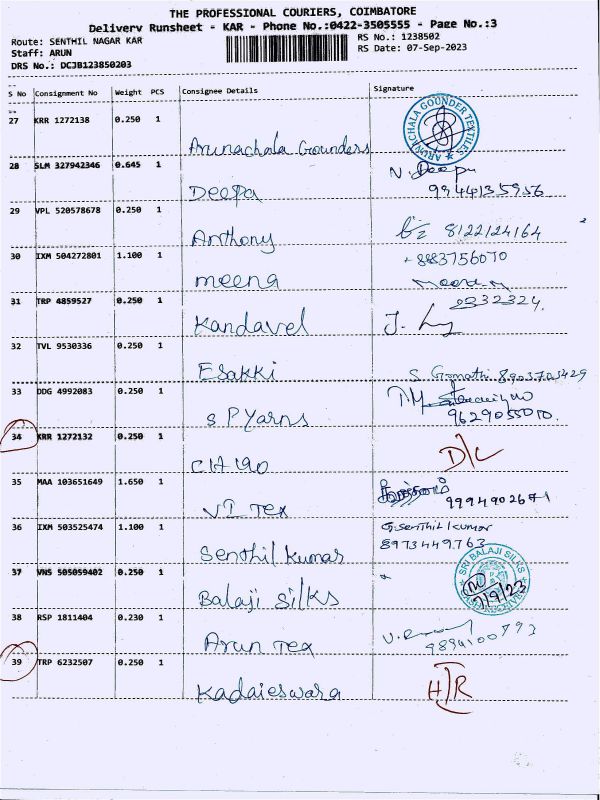 THE PROFESSIONAL COURIERS, COIMBATORE
Delivery Runsheet - KAR - Phone No.:0422-3505555 - Page No.:3
Route: SENTHIL NAGAR KAR
Staff: ARUN
DRS No.: DCJB123850203
RS No.: 1238502
RS Date: 07-Sep-2023
S No Consignment No Weight PCS Consignee Details Signature
27 KRR 1272138 0.250 1 Arunachala Gounders
ARUNACHALA GOUNDER TEXTILES
28 SLM 327942346 0.645 1 Deepa N. Deepa
9944135956
29 VPL 520578678 0.250 1 Anthony 8122124164
30 IXM 504272801 1.100 1 meena 8883756070
31 TRP 4859527 0.250 1 Kandavel J.
32 TVL 9530336 0.250 1 Esakki S Gomathi 8903703429
33 DDG 4992083 0.250 1 S P Yarns T.M.
9629055010.
34 KRR 1272132 0.250 1 D/L
35 MAA 103651649 1.650 1 VI Tex 9994902671
36 IXM 503525474 1.100 1 Senthil Kumar G. Senthil kumar
8973449763
37 VNS 505059402 0.250 1 Balaji Silks
SRI BALAJI SILKS
7/9/23
38 RSP 1811404 0.230 1 Arun Tex
9894100793
39 TRP 6232507 0.250 1 Kadaieswara